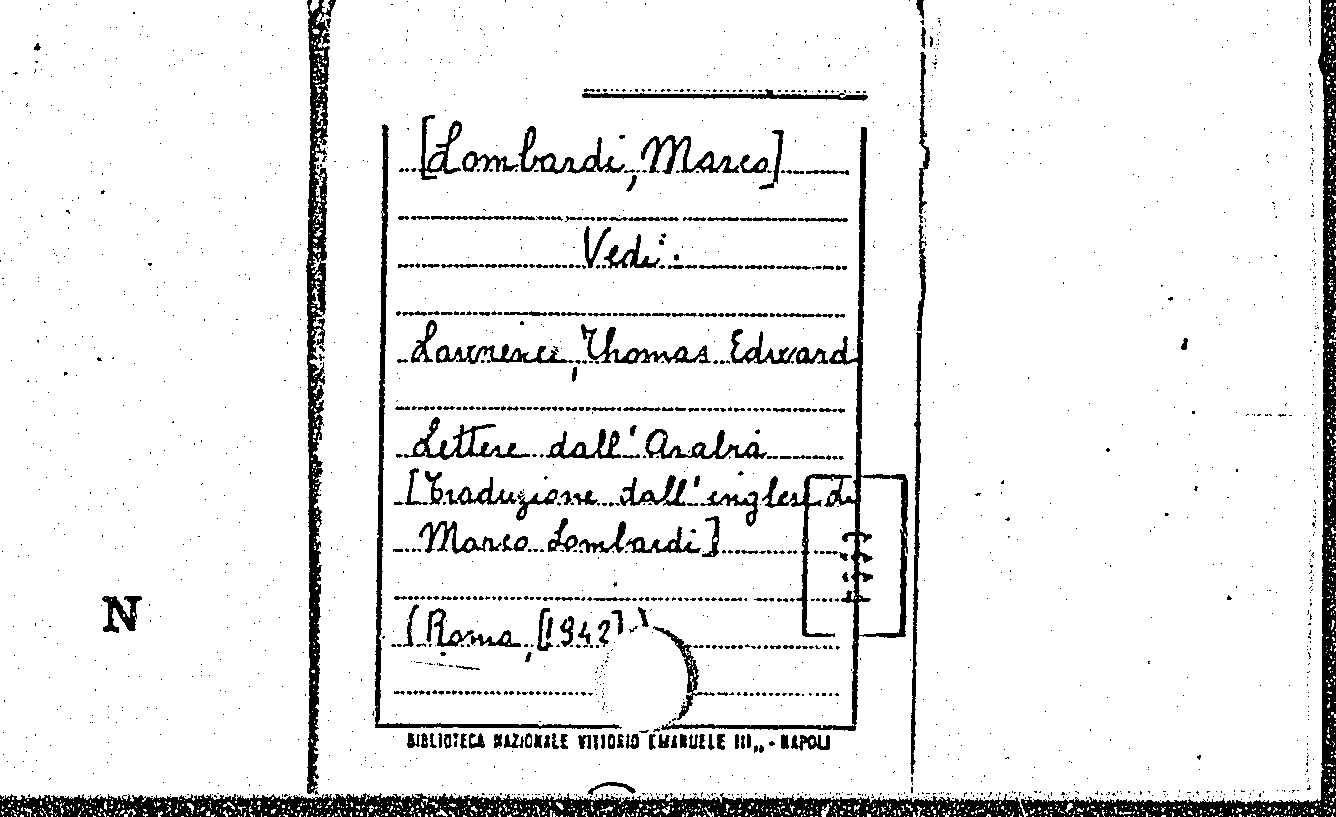 [Lombardi, Marco]
Vedi:
Lawrence, Thomas Edward
Lettere dall'Arabia
[Traduzione dall'inglese di
Marco Lombardi]
(Roma, [1942])
N
BIBLIOTECA NAZIONALE VITTORIO EMANUELE III„ - NAPOLI